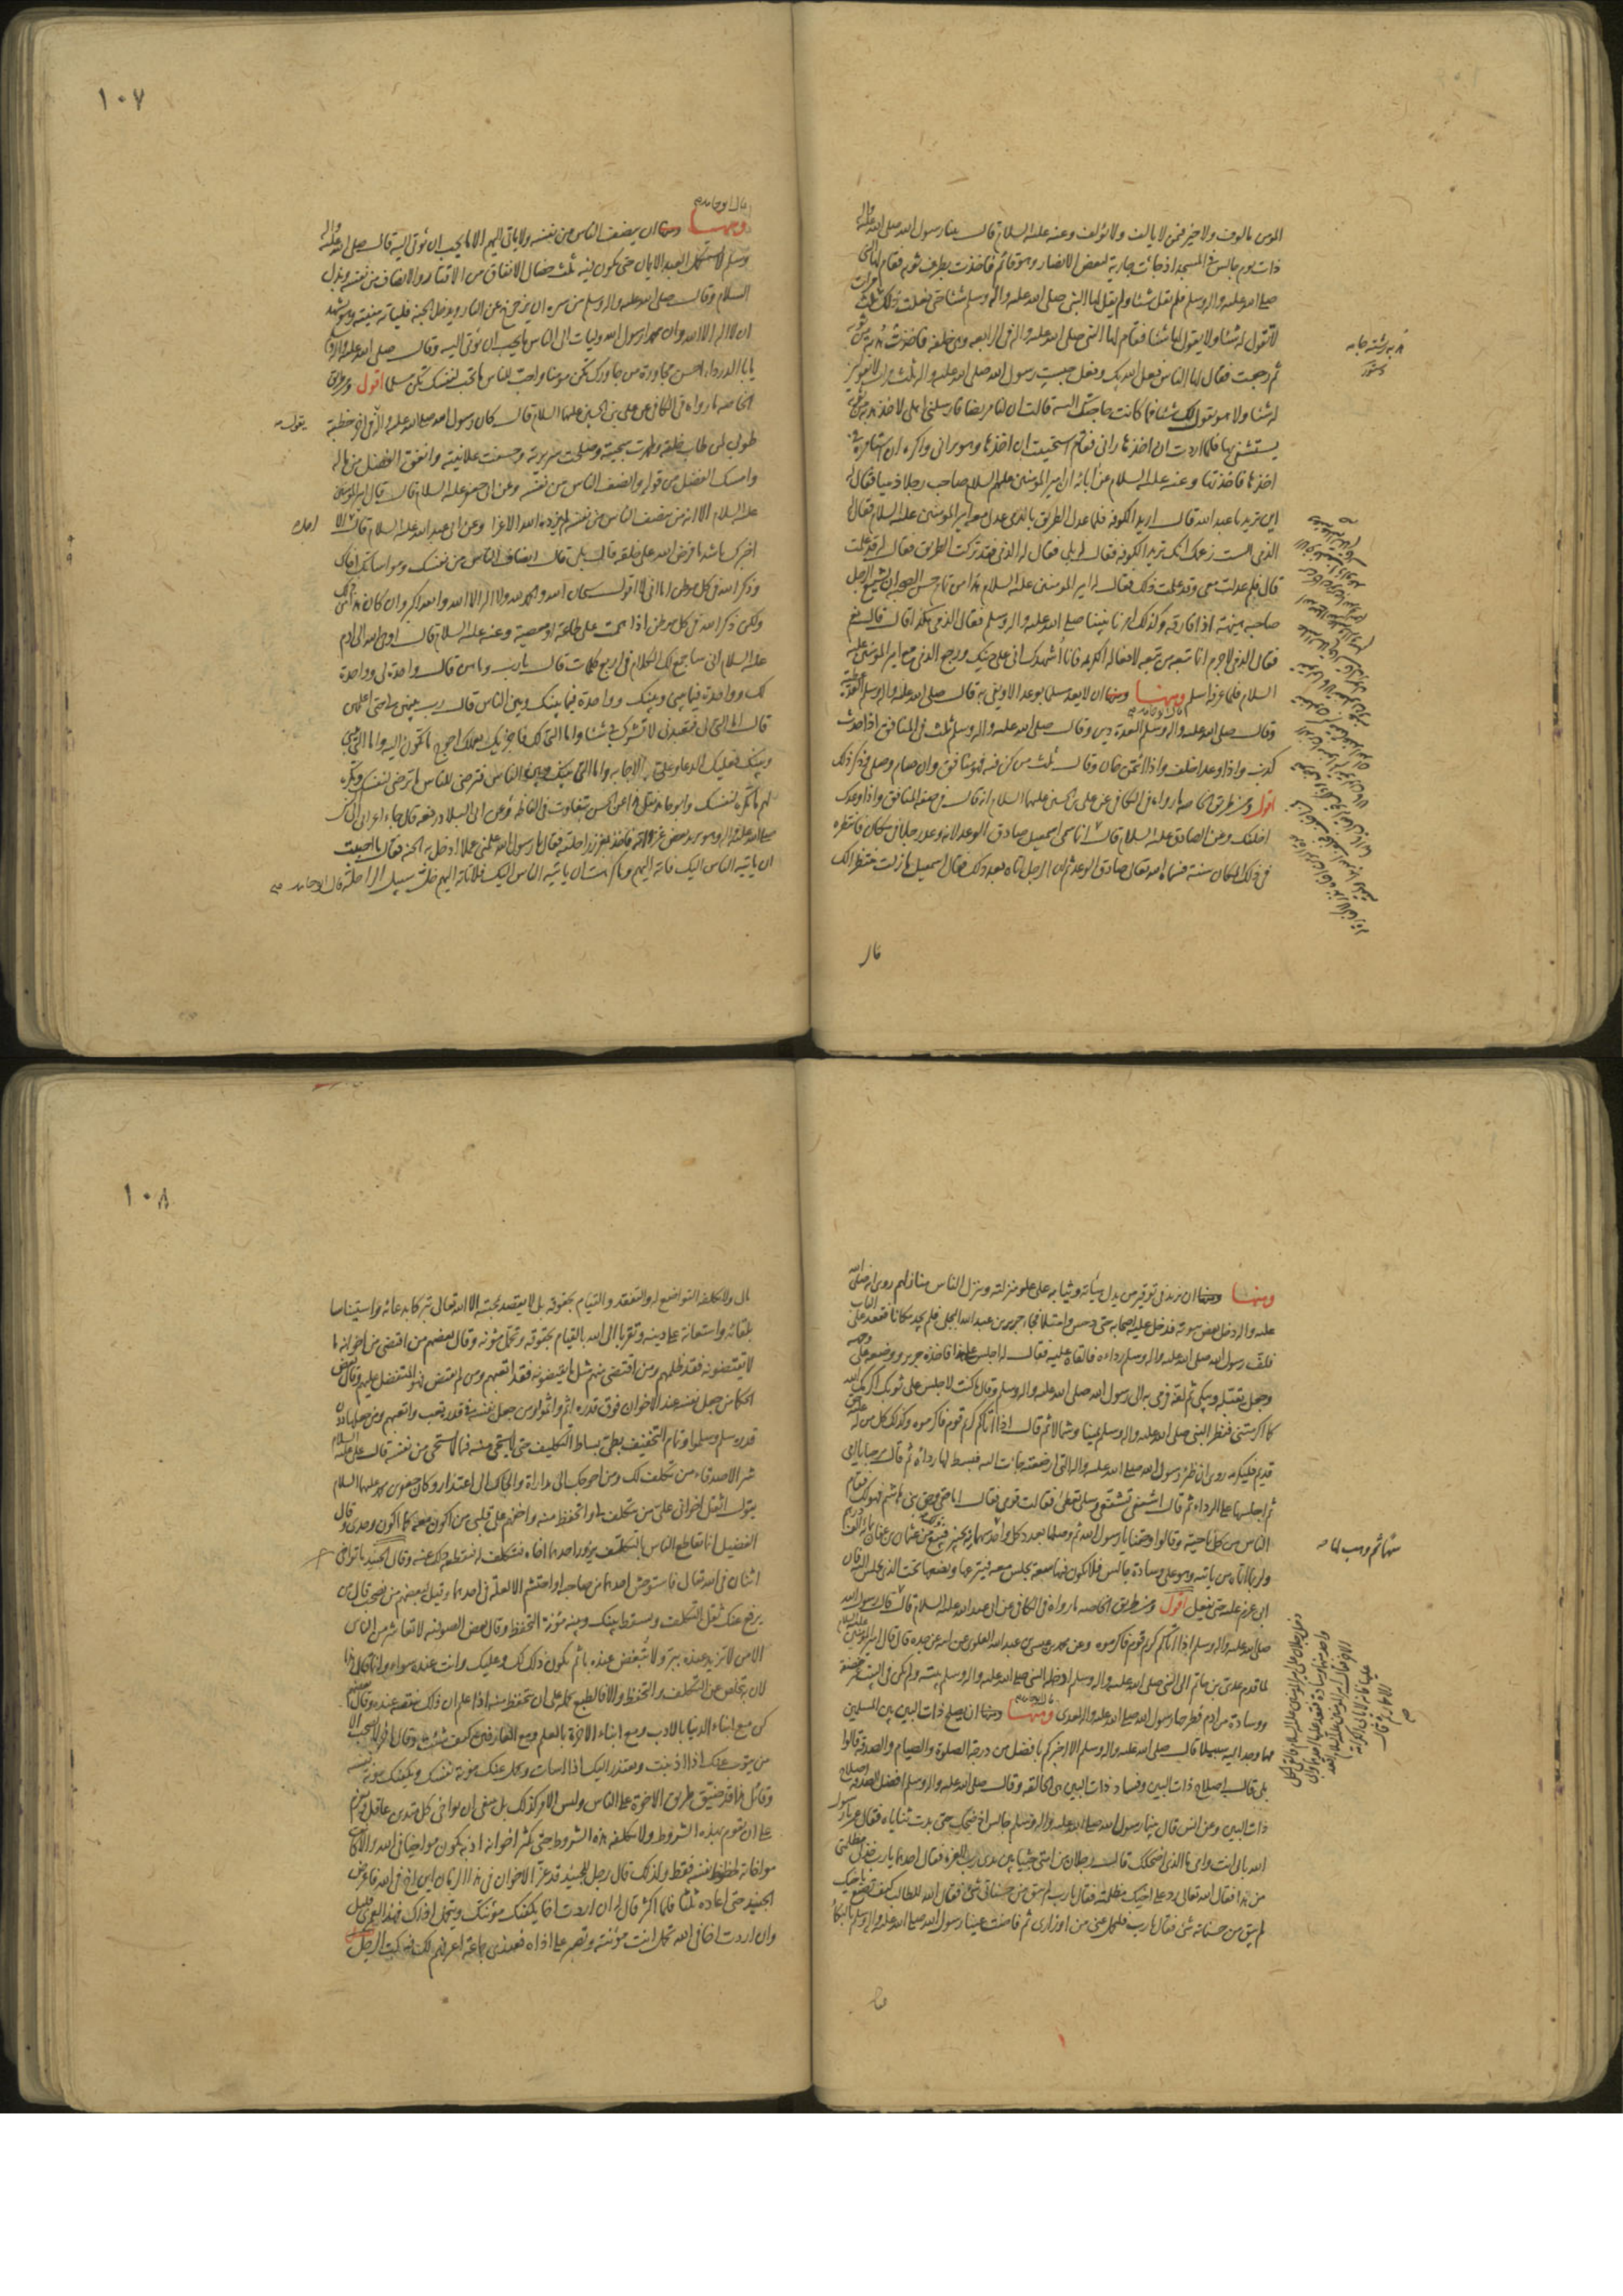 المؤمن مألوف ولا خير فيمن لا يالف ولا يؤلف وعنه عليه السلام قال بينا رسول الله صلى الله عليه واله
ذات يوم جالس في المسجد اذ جائت جارية لبعض الانصار وهو قائم فاخذت بطرف ثوبه فقام لها النبي
صلى الله عليه واله وسلم فلم تقل شيئا ولم يقل لها النبي صلى الله عليه واله وسلم شيئا حتى فعلت ذلك ثلث مرات
لا تقول له شيئا ولا يقول لها شيئا فقام لها النبي صلى الله عليه واله في الرابعة وهي خلفه فاخذت هدبة من ثوبه
ثم رجعت فقال لها الناس فعل الله بك وفعل حبست رسول الله صلى الله عليه واله ثلث مرات لا تقولين
له شيئا ولا هو يقول لك شيئا فما كانت حاجتك اليه قالت ان لنا مريضا فارسلني اهلي لاخذ هدبة من ثوبه
يستشفي بها فلما اردت ان اخذها راني فقام استحييت ان اخذها وهو يراني واكره ان استامره في
اخذها فاخذتها وعنه عليه السلام عن ابائه ان امير المؤمنين عليهم السلام صاحب رجلا ذميا فقال له
اين تريد يا عبد الله قال اريد الكوفة فلما عدل الطريق بالذمي عدل معه امير المؤمنين عليه السلام فقال له
الذمي الست زعمت انك تريد الكوفة فقال له بلى فقال له الذمي فقد تركت الطريق فقال له قد علمت
قال فلم عدلت معي وقد علمت ذلك فقال له امير المؤمنين عليه السلام هذا من تمام حسن الصحبة ان يشيع الرجل
صاحبه هنيئة اذا فارقه وكذلك امرنا نبينا صلى الله عليه واله وسلم فقال الذمي هكذا قال قال نعم
فقال الذمي لا جرم انما تبعه من تبعه لافعاله الكريمة فانا اشهدك اني على دينك ورجع الذمي مع امير المؤمنين عليه
السلام فلما عرفه اسلم ومنها ان لا يعد مسلما بوعد الا ويفي به قال صلى الله عليه واله وسلم العدة عطية
وقال صلى الله عليه واله وسلم العدة دين وقال صلى الله عليه واله وسلم ثلث في المنافق اذا حدث
كذب واذا وعد اخلف واذا ائتمن خان وقال ثلث من كن فيه فهو منافق وان صام وصلى وذكر ذلك
اقول ومن طريق الخاصة ما رواه في الكافي عن علي بن الحسين عليهما السلام انه قال في صفة المنافق واذا وعدك
اخلفك وعن الصادق عليه السلام قال انما سمي اسمعيل صادق الوعد لانه وعد رجلا في مكان فانتظره
في ذلك المكان سنة فسماه الله تعالى صادق الوعد ثم ان الرجل اتاه بعد ذلك فقال اسمعيل ما زلت منتظرا لك
قال
١٠٧
قال ابو حامد
ومنها ان ينصف الناس من نفسه ولا ياتي اليهم الا بما يحب ان يؤتى اليه قال صلى الله عليه واله
وسلم لا يستكمل العبد الايمان حتى يكون فيه ثلث خصال الانفاق من الاقتار والانصاف من نفسه وبذل
السلام وقال صلى الله عليه واله وسلم من سره ان يزحزح عن النار ويدخل الجنة فلياته منيته وهو يشهد
ان لا اله الا الله وان محمدا رسول الله وليات الى الناس ما يحب ان يؤتى اليه وقال صلى الله عليه واله
يا ابا الدرداء احسن مجاورة من جاورك تكن مؤمنا واحب للناس ما تحب لنفسك تكن مسلما اقول ومن طريق
الخاصة ما رواه في الكافي عن علي بن الحسين عليهما السلام قال كان رسول الله صلى الله عليه واله في اخر خطبته
طوبى لمن طاب خلقه وطهرت سجيته وصلحت سريرته وحسنت علانيته وانفق الفضل من ماله
وامسك الفضل من قوله وانصف الناس من نفسه وعن ابي جعفر عليه السلام قال قال امير المؤمنين
عليه السلام الا انه من ينصف الناس من نفسه لم يزده الله الا عزا وعن ابي عبد الله عليه السلام قال الا
اخبرك باشد ما فرض الله على خلقه قال بلى قال انصاف الناس من نفسك ومواساتك اخاك
وذكر الله في كل موطن اما اني لا اقول سبحان الله والحمد لله ولا اله الا الله والله اكبر وان كان هذا من ذلك
ولكن ذكر الله في كل موطن اذا هممت على طاعة او معصية وعنه عليه السلام قال اوحى الله الى ادم
عليه السلام اني ساجمع لك الكلام في اربع كلمات قال يا رب وما هن قال واحدة لي وواحدة
لك وواحدة فيما بيني وبينك وواحدة فيما بينك وبين الناس قال رب بينهن لي حتى اعلمهن
قال اما التي لي فتعبدني لا تشرك بي شيئا واما التي لك فاجزيك بعملك احوج ما تكون اليه واما التي بيني
وبينك فعليك الدعاء وعلي الاجابة واما التي بينك وبين الناس فترضى للناس ما ترضى لنفسك وتكره
لهم ما تكره لنفسك
صلى الله عليه واله وهو يريد بعض غزواته فاخذ بغرز راحلته فقال يا رسول الله علمني عملا ادخل به الجنة فقال ما احببت
ان ياتيه الناس اليك فاته اليهم وما كرهت ان ياتيه الناس اليك فلا تاته اليهم خل سبيل الراحلة قال ابو حامد
ومنها ان يزيد في توقير من يدل هيأته وثيابه على علو منزلته وينزل الناس منازلهم روي انه صلى الله
عليه واله دخل بعض بيوته فدخل عليه اصحابه حتى دحس وامتلا فجاء جرير بن عبد الله البجلي فلم يجد مكانا فقعد على الباب
فلف رسول الله صلى الله عليه واله وسلم رداءه فالقاه عليه فقال له اجلس على هذا فاخذه جرير ووضعه على وجهه
وجعل يقبله ويبكي ثم لفه ورمى به الى رسول الله صلى الله عليه واله وسلم وقال ما كنت لاجلس على ثوبك اكرمك الله
كما اكرمتني فنظر النبي صلى الله عليه واله وسلم يمينا وشمالا ثم قال اذا اتاكم كريم قوم فاكرموه وكذلك كل من له عليه حق
قديم فليكرمه روي ان ظئر رسول الله صلى الله عليه واله التي ارضعته جائت اليه فبسط لها رداءه ثم قال مرحبا بامي
ثم اجلسها على الرداء ثم قال اشفعي تشفعي وسلي تعطي فقالت قومي فقال اما حقي وحق بني هاشم فهو لك فقام
الناس من كل ناحية وقالوا وحقنا يا رسول الله ثم وصلها بعد
ولربما اتاه من ياتيه وهو على وسادة جالس فلا يكون فيها سعة يجلس معه فينزعها ويضعها تحت الذي يجلس اليه فان
ابى عزم عليه حتى يفعل اقول ومن طريق الخاصة ما رواه في الكافي عن ابي عبد الله عليه السلام قال قال رسول الله
صلى الله عليه واله وسلم اذا اتاكم كريم قوم فاكرموه وعن محمد بن عيسى بن عبد الله العلوي عن ابيه عن جده قال قال امير المؤمنين عليه السلام
لما قدم عدي بن حاتم الى النبي صلى الله عليه واله وسلم ادخله النبي صلى الله عليه واله وسلم بيته ولم يكن في البيت غير خصفة
ووسادة من ادم فطرحها رسول الله صلى الله عليه واله لعدي ومنها ان يصلح ذات البين بين المسلمين
مهما وجد اليه سبيلا قال صلى الله عليه واله وسلم الا اخبركم بافضل من درجة الصلوة والصيام والصدقة قالوا
بلى قال اصلاح ذات البين وفساد ذات البين هي الحالقة وقال صلى الله عليه واله وسلم افضل الصدقة اصلاح
ذات البين وعن انس قال بينما رسول الله صلى الله عليه واله وسلم جالس اذ ضحك حتى بدت ثناياه فقال عمر يا رسول
الله بابي انت وامي ما الذي اضحكك قال رجلان من امتي جثيا بين يدي رب العزة فقال احدهما يا رب خذ لي مظلمتي
من هذا فقال الله تعالى رد على اخيك مظلمته فقال يا رب لم يبق من حسناتي شئ فقال الله للطالب كيف تصنع باخيك
لم يبق من حسناته شئ فقال يا رب فليحمل عني من اوزاري ثم فاضت عينا رسول الله صلى الله عليه واله وسلم بالبكاء
١٠٨
مال ولا يكلفه التواضع له والتفقد والقيام بحقوقه بل لا يقصد بمحبته الا الله تعالى تبركا بدعائه واستيناسا
بلقائه واستعانة على دينه وتقربا الى الله بالقيام بحقوقه وتحمل مؤنه وقال بعضهم من اقتضى من اخوانه ما
لا يقتضونه فقد ظلمهم ومن اقتضى منهم مثل ما يقتضونه فقد اتعبهم ومن لم يقتض فهو المتفضل عليهم وقال بعض
الحكماء من جعل نفسه عند الاخوان فوق قدره اثم واثموا ومن جعل نفسه في قدره تعب واتعبهم ومن جعلها دون
قدره سلم وسلموا وتمام التخفيف بطي بساط التكليف حتى لا يستحيي منه فيما لا يستحيي من نفسه قال علي عليه السلام
شر الاصدقاء من تكلف لك ومن احوجك الى مداراة والجاك الى اعتذار وكان جعفر بن محمد عليهما السلام
يقول اثقل اخواني علي من يتكلف لي واتحفظ منه واخفهم على قلبي من اكون معه كما اكون وحدي وقال
الفضيل انما تقاطع الناس بالتكلف يزور احدهما اخاه فيتكلف له فيقطعه ذلك عنه وقال الجنيد ما تواخى
اثنان في الله تعالى فاستوحش احدهما من صاحبه او احتشم الا لعلة في احدهما وقيل لبعضهم من نصحب قال من
يرفع عنك ثقل التكلف ويسقط بينك وبينه مؤنة التحفظ وقال بعض الصوفية لا تعاشر من الناس
الا من لا تزيد عنده ببر ولا تنقص عنده باثم يكون ذلك لك وعليك وانت عنده سواء وانما قال هذا
لان به يتخلص عن التكلف والتحفظ والا فالطبع يحمله على ان يتحفظ منه اذا علم ان ذلك ينقصه عنده وقال بعضهم
كن مع ابناء الدنيا بالادب ومع ابناء الاخرة بالعلم ومع العارفين كيف شئت وقال اخر لا تصحب الا
من يتوب عنك اذا اذنبت ويعتذر اليك اذا اسات ويحمل عنك مؤنة نفسك ويكفيك مؤنة نفسه
وقائل هذا قد ضيق طريق الاخوة على الناس وليس الامر كذلك بل ينبغي ان يواخي كل متدين عاقل ويعزم
على ان يقوم بهذه الشروط ولا يكلفه هذه الشروط حتى يكثر اخوانه اذ به يكون مواخيا في الله والا كانت
مواخاته لحظوظ نفسه فقط ولذلك قال رجل للجنيد قد عز الاخوان في هذا الزمان اين اخ في الله فاعرض
الجنيد حتى اعاده ثلثا فلما اكثر قال له ان اردت اخا يكفيك مؤنتك ويتحمل اذاك فهذا لعمري قليل
وان اردت اخا في الله تحمل انت مؤنته وتصبر على اذاه فعندي جماعة اعرفهم لك فسكت الرجل